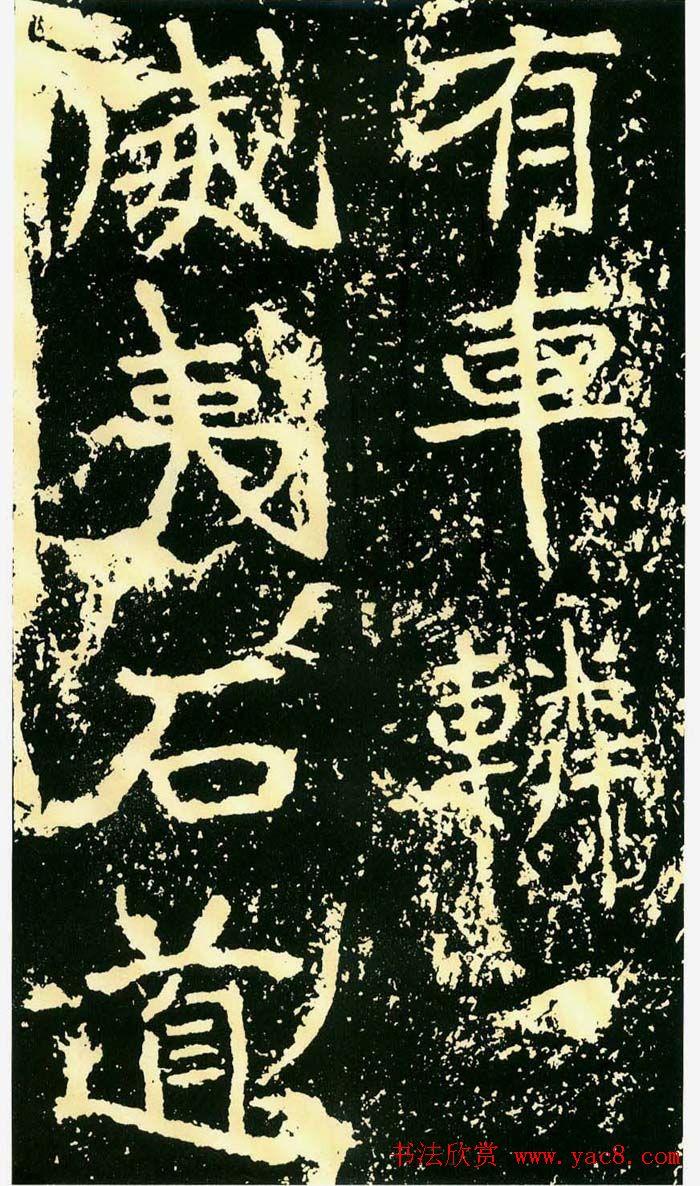 有車轔
威夷石道
书法欣赏 www.yac8.com